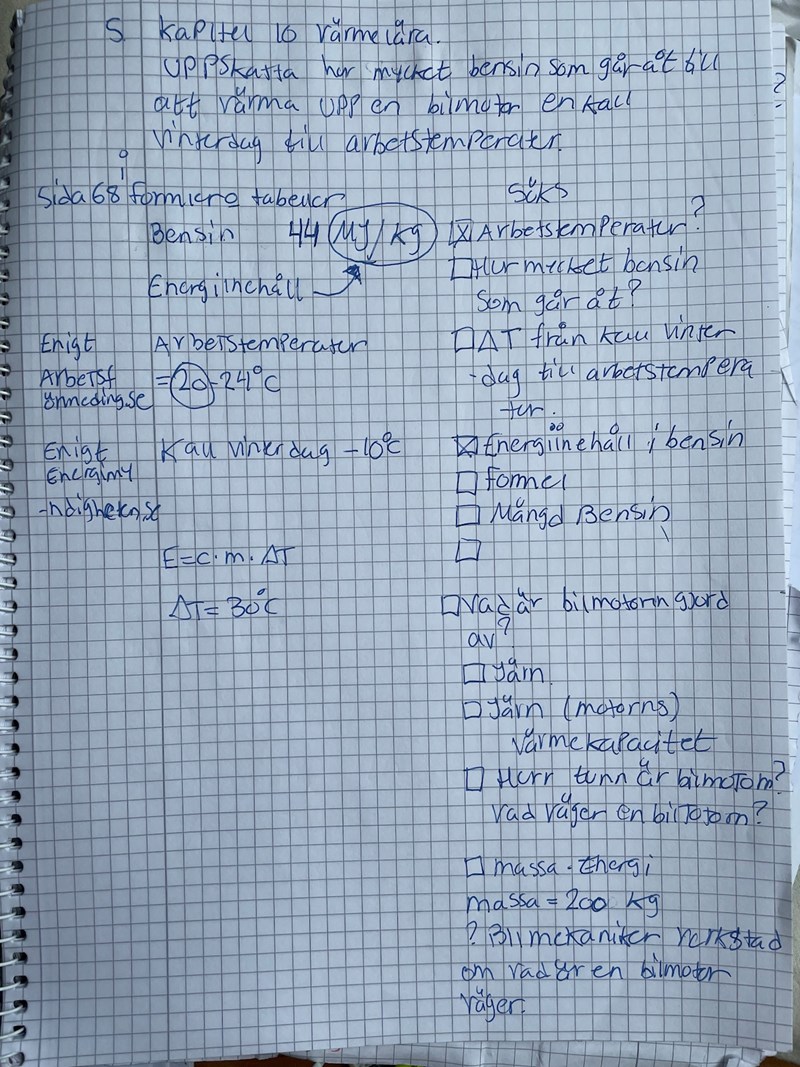 5 Kapitel 10 värmelära.
UPPSkatta hur mycket bensin som går åt till
att värma UPP en bilmotor en kall
?
vinterdag till arbetstemperatur.
Sida 68 i formlera tabeller
Bensin 44 MJ/kg
Energiinehåll
Enigt Arbetstemperatur
Arbetsf = 20-24°C
örmedling.se
Enigt Kall vinterdag -10°C
Energimy
-ndigheten.se
E=c·m·ΔT
ΔT= 30°C
Söks
Arbetstemperatur?
Hur mycket bensin
som går åt?
ΔT från kall vinter
-dag till arbetstempera
tur.
Energiinehåll i bensin
formel
Mängd Bensin
Vad är bilmotorn gjord
av?
Järn.
Järn (motorns)
värmekapacitet
Hurr tunn är bilmotorn?
vad väger en bilmotorn?
massa · Energi
massa = 200 kg
? Bilmekaniker verkstad
om vad är en bilmotor
väger.